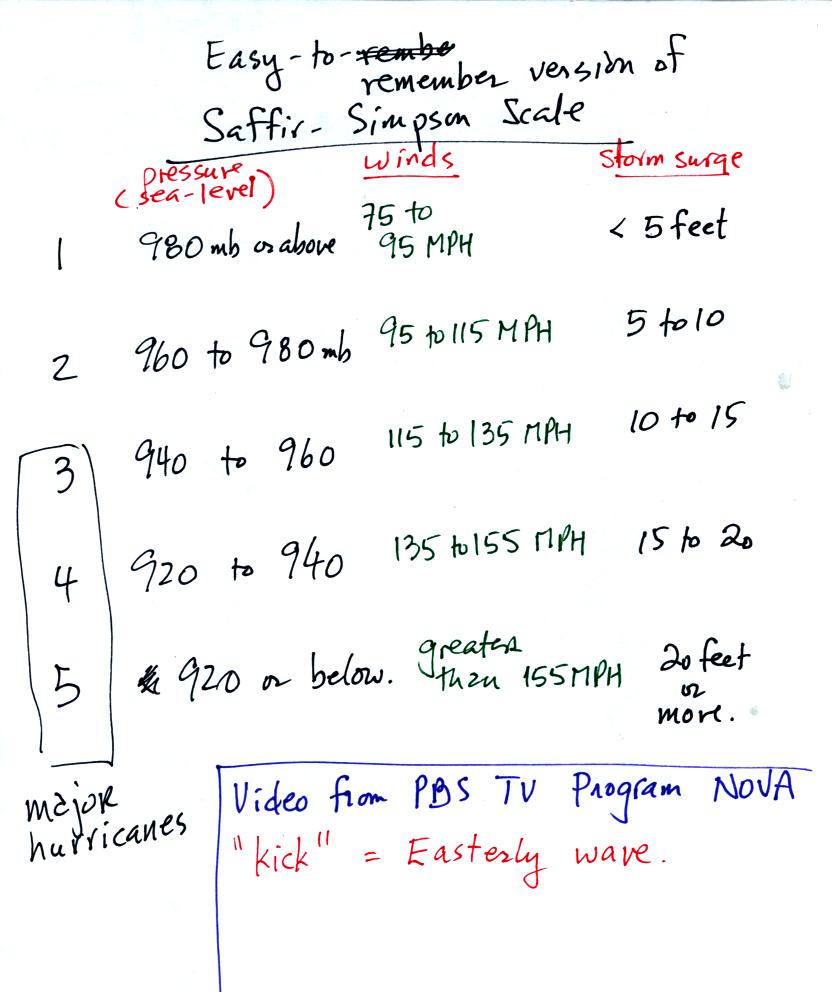 Easy-to-rembe
remember version of
Saffir-Simpson Scale
pressure (sea-level) Winds Storm surge
1 980 mb or above 75 to 95 MPH < 5 feet
2 960 to 980 mb 95 to 115 MPH 5 to 10
3 940 to 960 115 to 135 MPH 10 to 15
4 920 to 940 135 to 155 MPH 15 to 20
5 920 or below. greater than 155 MPH 20 feet or more.
major
hurricanes
Video from PBS TV Program NOVA
"kick" = Easterly wave.